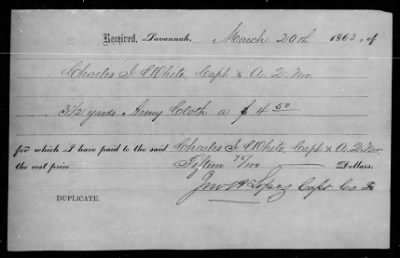 Received, Savannah, March 20th 1863, of
Charles J. White, Capt & A. Q. M.
3 1/2 yards Army Cloth a $4 50
for which I have paid to the said Charles J. White, Capt. & A. Q. M.
the cost price Fifteen 75/100 Dollars.
Jno H Lopez Capt Co
DUPLICATE.